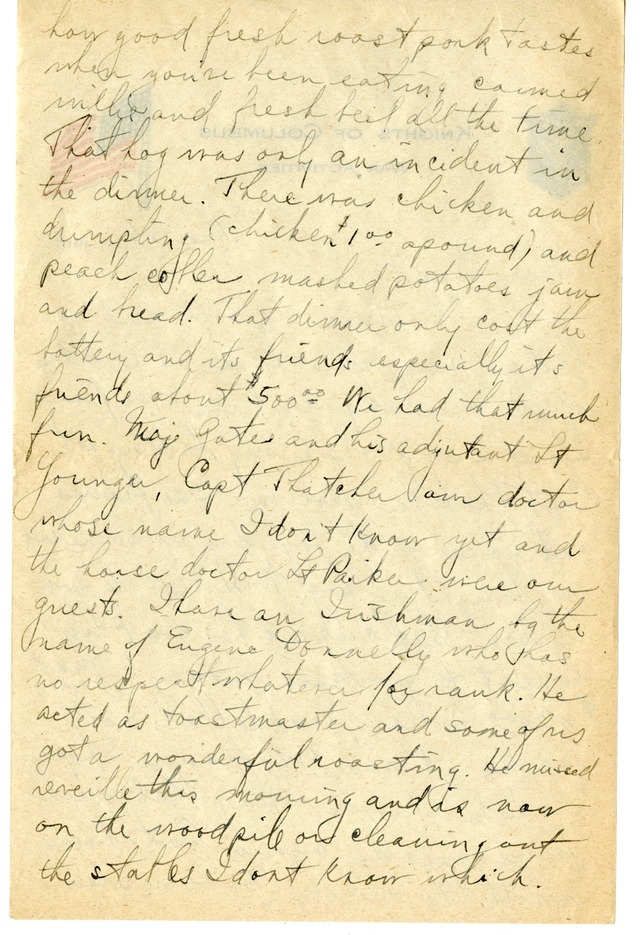 how good fresh roast pork tastes
when you've been eating canned
willie and fresh beef all the time.
That hog was only an incident in
the dinner. There was chicken and
dumpling (chicken $1 00 apound) and
peach coffee mashed potatoes jam
and bread. That dinner only cost the
battery and its friends especially it's
friends about $500 00 We had that much
fun. Maj Gates and his adjutant Lt
Younger, Capt Thatcher our doctor
whose name I don't know yet and
the horse doctor Lt Parker were our
guests. I have an Irishman by the
name of Eugene Donnelly who has
no respect whatever for rank. He
acted as toastmaster and some of us
got a wonderful roasting. He missed
reveille this morning and is now
on the woodpile or cleaning out
the stables I dont know which.
KNIGHTS OF COLUMBUS